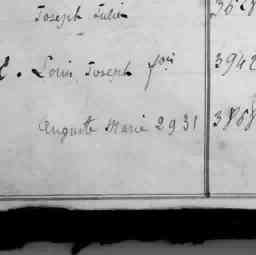 Joseph Julien
Louis Joseph fois 3942
Auguste Marie 2931 3868